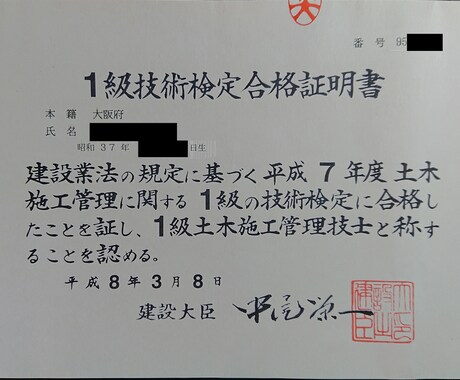 番号 95
1級技術検定合格証明書
本籍 大阪府
氏名
昭和37年 日生
建設業法の規定に基づく平成7年度土木
施工管理に関する1級の技術検定に合格し
たことを証し、1級土木施工管理技士と称す
ることを認める。
平成8年3月8日
建設大臣 中尾栄一
建設大臣之印